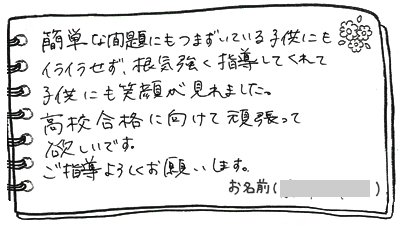 簡単な問題にもつまずいている子供にも
イライラせず、根気強く指導してくれて
子供にも笑顔が見れました。
高校合格に向けて頑張って
欲しいです。
ご指導よろしくお願いします。
お名前( )